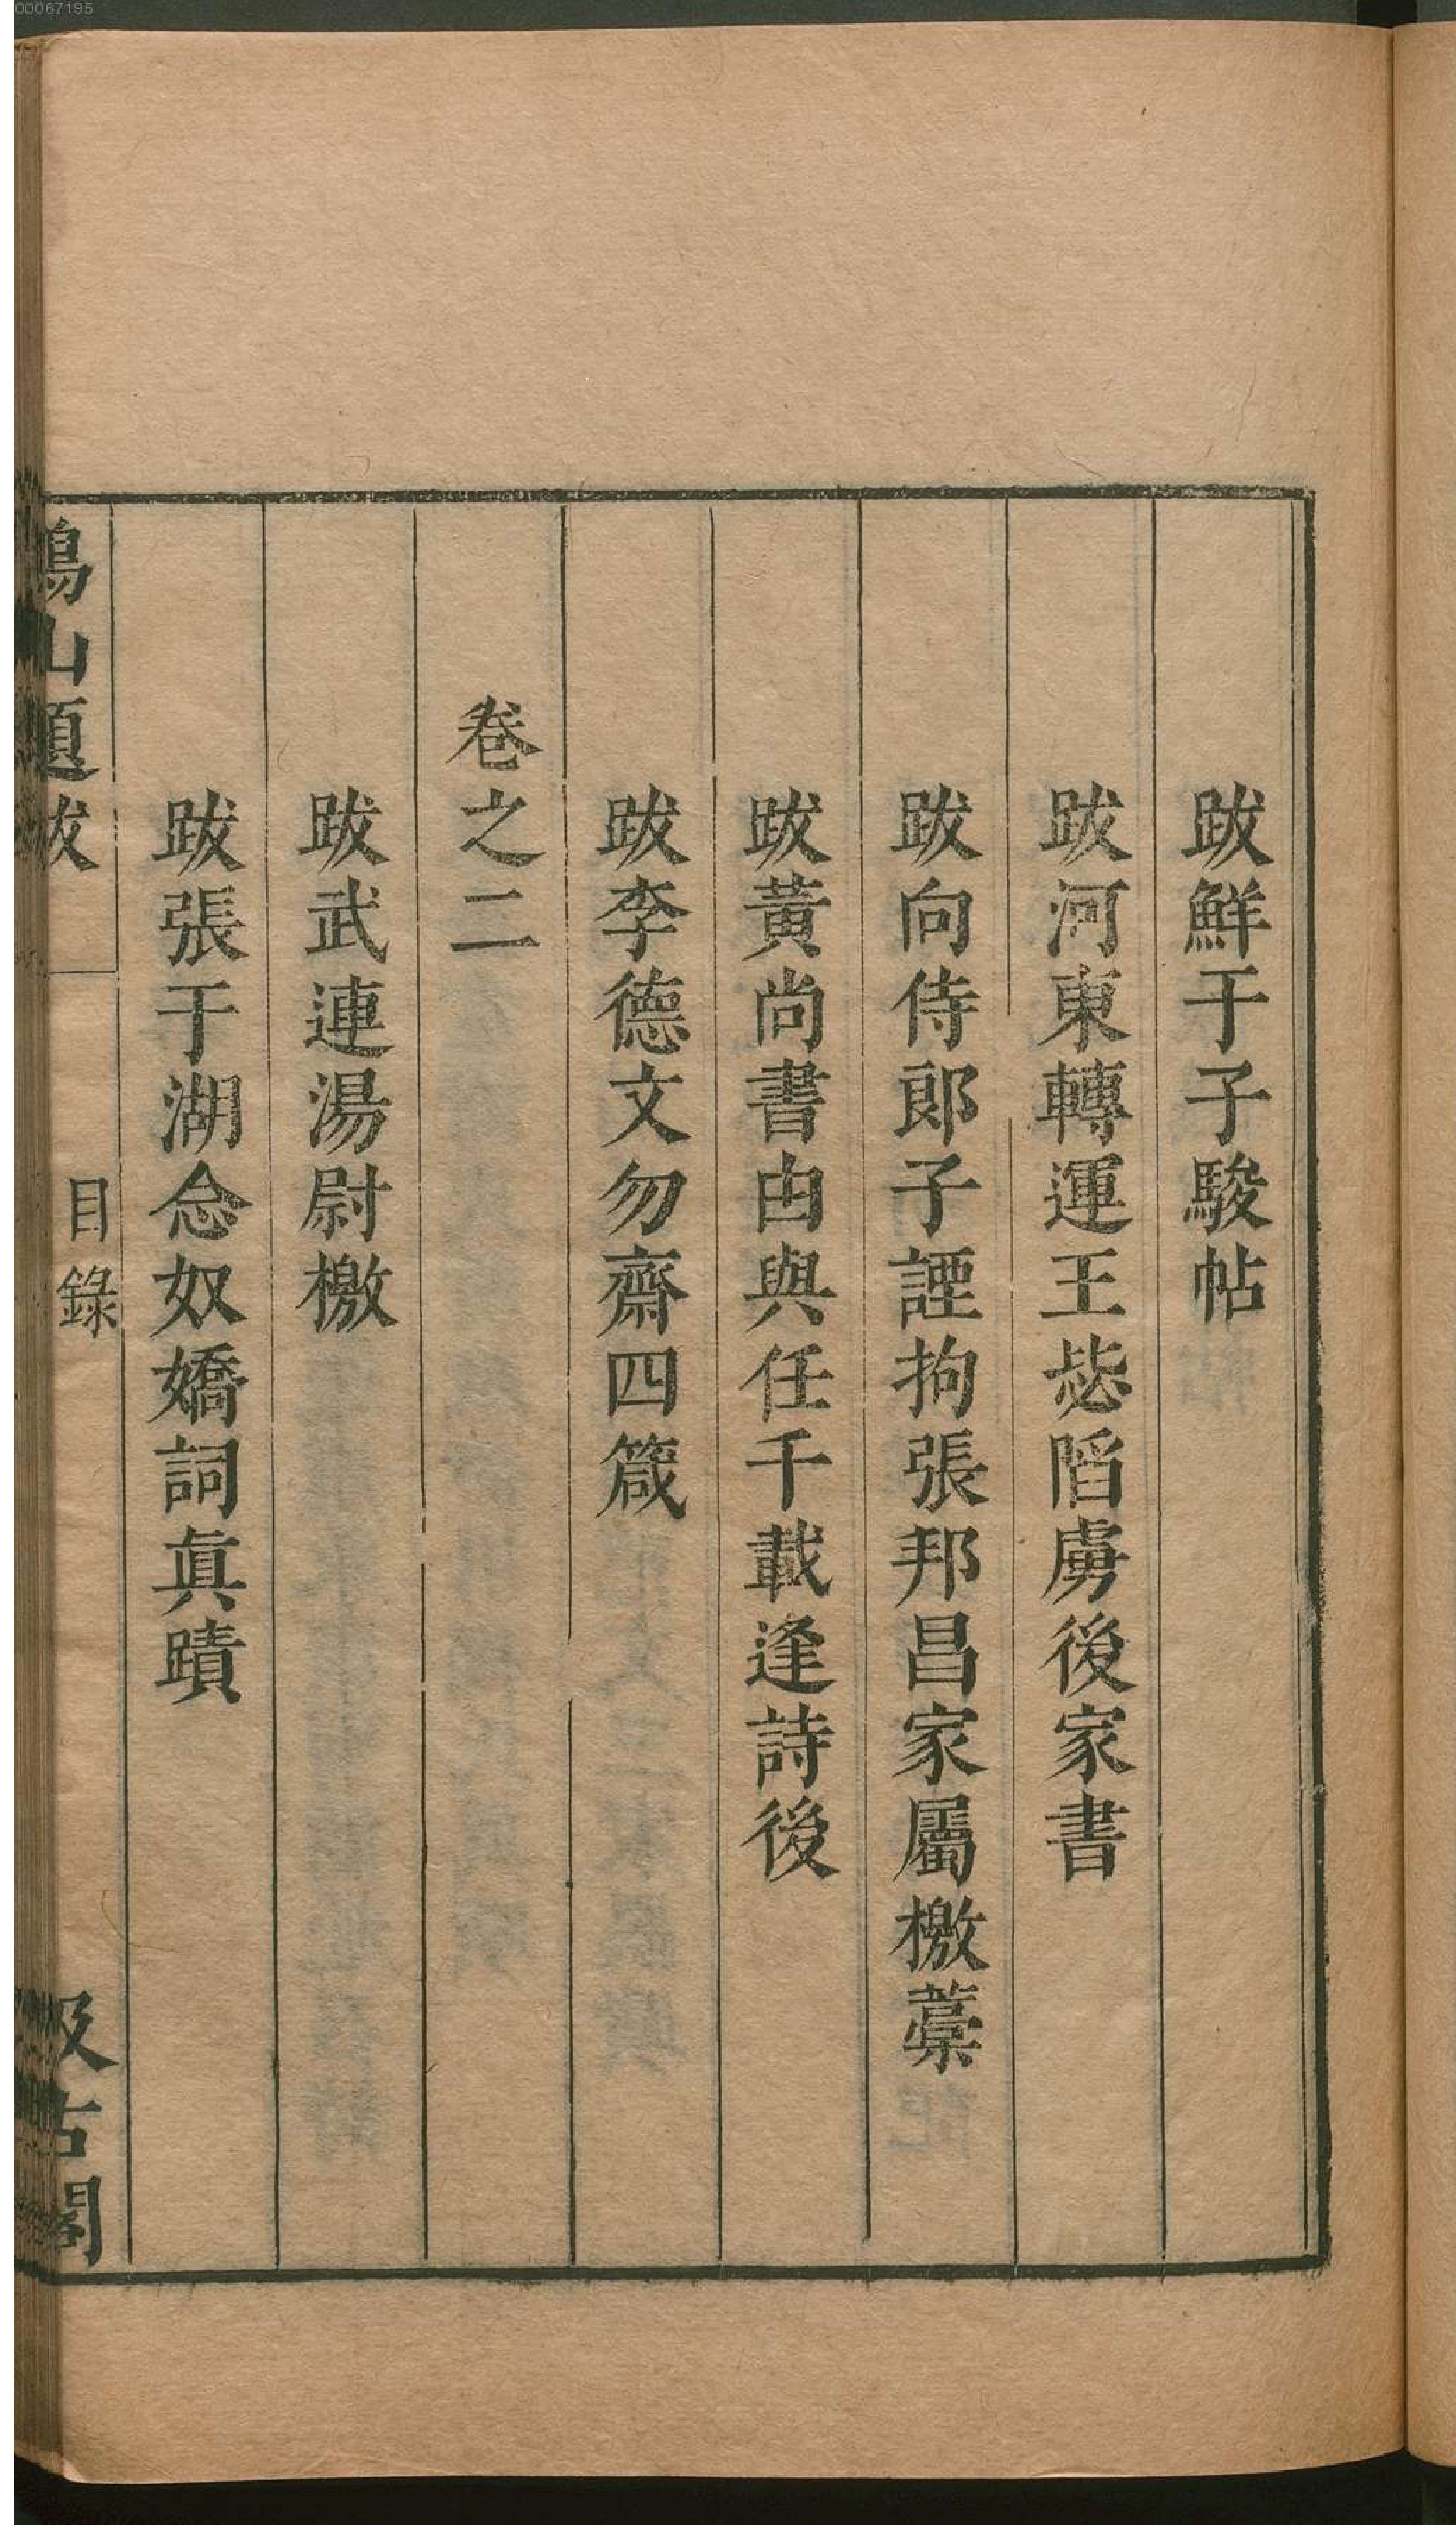 00067195
跋鮮于子駿帖
跋河東轉運王毖陷虜後家書
跋向侍郎子諲拘張邦昌家屬檄藁
跋黃尚書由與任千載逢詩後
跋李德文勿齋四箴
卷之二
跋武連湯尉檄
跋張于湖念奴嬌詞眞蹟
鶴山題跋
目錄
汲古閣